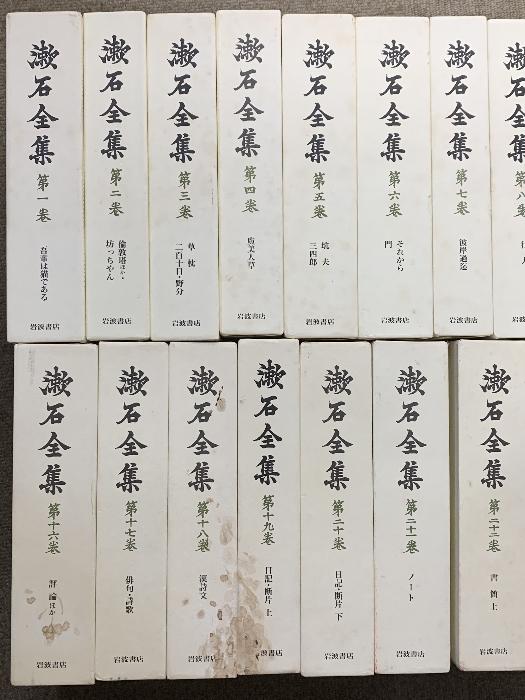 漱石全集
第一巻
吾輩は猫である
岩波書店
漱石全集
第二巻
倫敦塔ほか・
坊っちゃん
岩波書店
漱石全集
第三巻
草枕
二百十日・野分
岩波書店
漱石全集
第四巻
虞美人草
岩波書店
漱石全集
第五巻
坑夫
三四郎
岩波書店
漱石全集
第六巻
それから
門
岩波書店
漱石全集
第七巻
彼岸過迄
岩波書店
漱石全集
第八巻
行人
漱石全集
第十六巻
評論ほか
岩波書店
漱石全集
第十七巻
俳句・詩歌
岩波書店
漱石全集
第十八巻
漢詩文
岩波書店
漱石全集
第十九巻
日記・断片 上
岩波書店
漱石全集
第二十巻
日記・断片 下
岩波書店
漱石全集
第二十一巻
ノート
岩波書店
漱石全集
第二十二巻
書簡 上
岩波書店